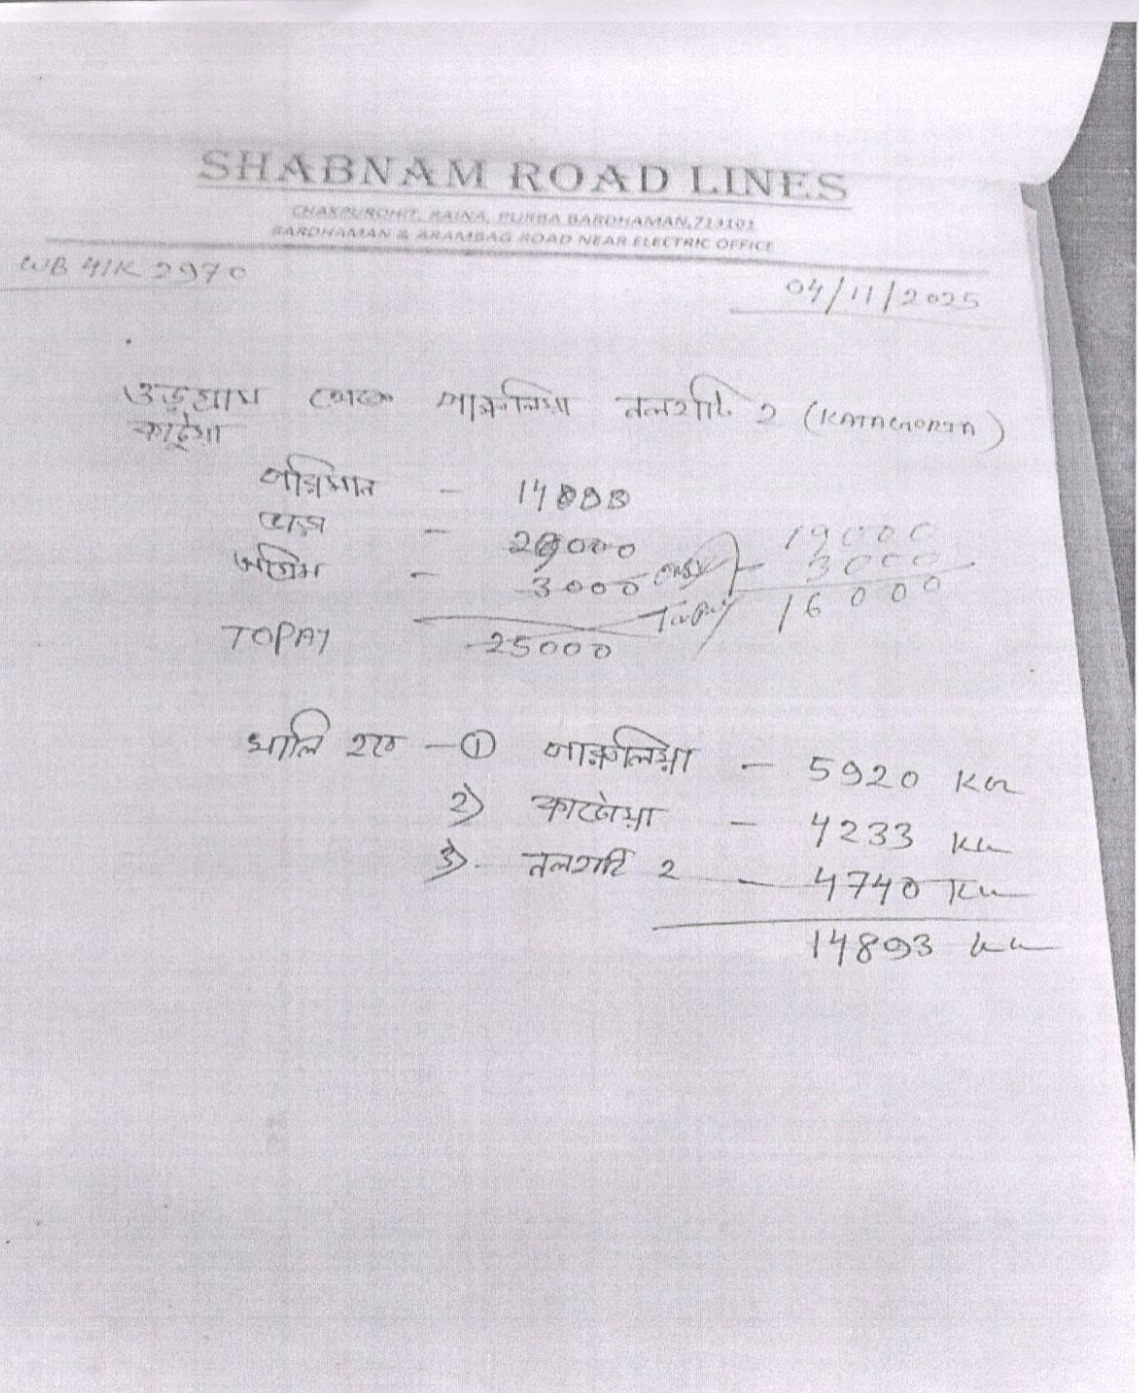 SHABNAM ROAD LINES
CHAKPUROHIT, RAINA, PURBA BARDHAMAN, 713101
BARDHAMAN & ARAMBAG ROAD NEAR ELECTRIC OFFICE
WB 41K 2970
04/11/2025
ওড়গ্রাম থেকে পারুলিয়া নলহাটি 2
কাটোয়া
পরিমান -
ভাড়া - 19000
অগ্রিম - 3000 - 3000
Topay 16000
TOPAY 25000
খালি হবে - ① পারুলিয়া - 5920 KG
2) কাটোয়া - 4233 KG
3) নলহাটি 2 - 4740 KG
14893 KG